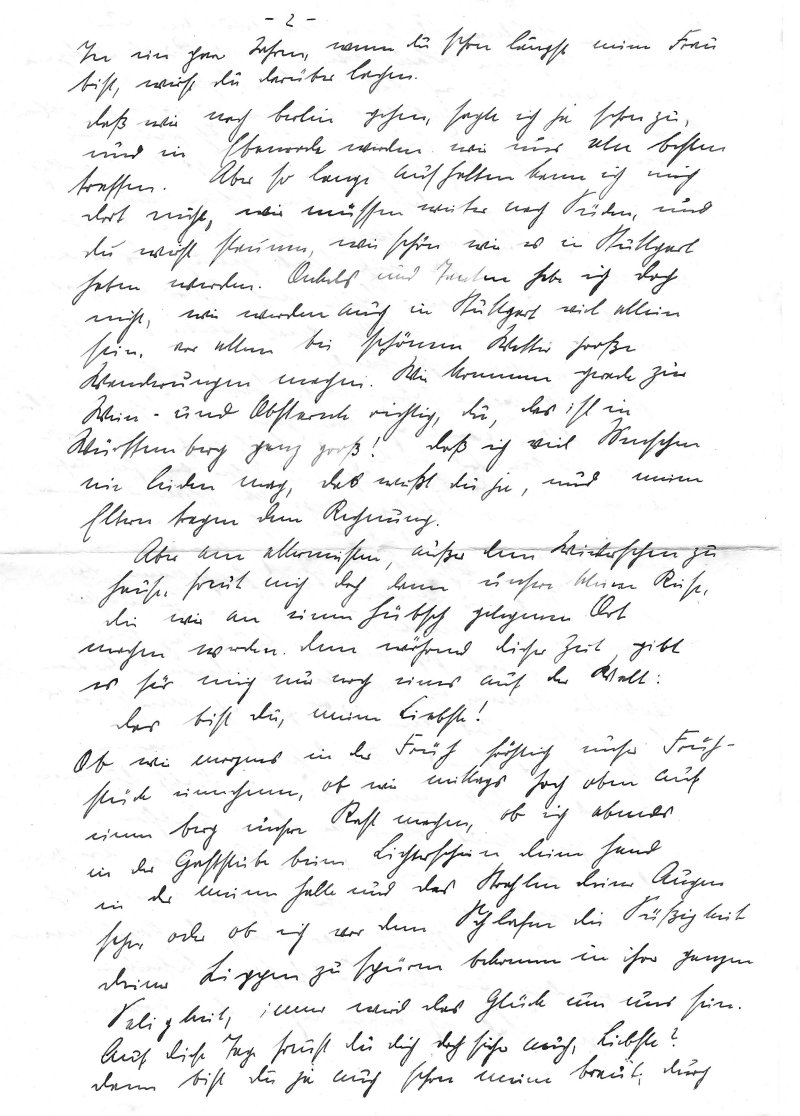 - 2 -
In ein paar Jahren, wenn du schon längst meine Frau
bist, wirst du darüber lachen.
daß wir nach Berlin gehen, sagte ich ja schon zu,
und in werden wir uns am besten
treffen. Aber so lange aufhalten kann ich mich
dort nicht, wir müssen weiter nach Süden, und
du wirst staunen, wie schön wir es in Stuttgart
haben werden. Onkels und Tanten habe ich doch
nicht, wir werden auch in Stuttgart viel allein
sein, vor allem bei schönem Wetter große
Wanderungen machen. Wir kommen gerade zur
Wein- und Obsternte richtig, du, das ist in
Württemberg ganz groß! daß ich viel Menschen
nie leiden mag, das weißt du ja, und meine
Eltern tragen dem Rechnung.
Aber am allermeisten, außer dem Wiedersehen zu
Hause, freut mich doch dann unsere kleine Reise,
die wir an einen hübsch gelegenen Ort
machen werden. denn während dieser Zeit gibt
es für mich nur noch eines auf der Welt:
das bist du, meine Liebste!
Ob wir morgens in der Früh fröhlich unser Früh-
stück einnehmen, ob wir mittags hoch oben auf
einem Berg unsere Rast machen, ob ich abends
in der Gaststube beim Lichterschein deine Hand
in der meinen halte und das Strahlen deiner Augen
sehe oder ob ich vor dem Schlafen die Süßigkeit
deiner Lippen zu spüren bekomme in ihrer ganzen
Seligkeit, immer wird das Glück um uns sein.
Auf diese Tage freust du dich doch sicher auch, Liebste?
dann bist du ja auch schon meine Braut, durch